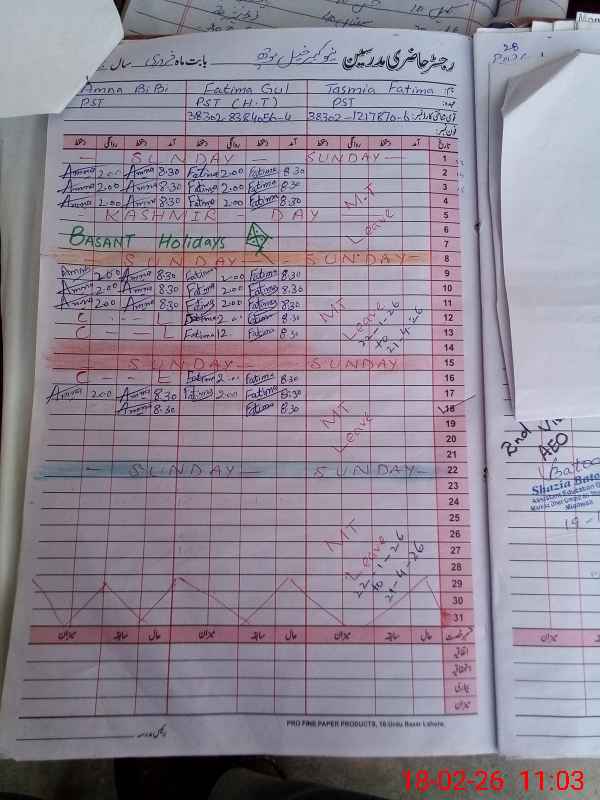 رجسٹر حاضری مدرسین
بابت ماہ فروری سال
Amna Bi Bi Fatima Gul Tasmia Fatima نام:
PST PST (H.T) PST عہدہ:
38302-8384056-4 38302-1217870-6
فون نمبر:
آمد دستخط روانگی دستخط آمد دستخط روانگی دستخط تاریخ
— SUNDAY — SUNDAY — 1
Amna 2.00 Amna 8:30 Fatima 2.00 Fatima 8:30 2
Amna 2.00 Amna 8:30 Fatima 2.00 Fatima 8:30 3
Amna 2.00 Amna 8:30 Fatima 2.00 Fatima 8:30 M.T 4
— KASHMIR — DAY 5
Leave 6
BASANT Holidays 7
— SUNDAY — SUNDAY — 8
Amna 2.00 Amna 8:30 Fatima 2.00 Fatima 8:30 9
Amna 2.00 Amna 8:30 Fatima 2.00 Fatima 8:30 10
Amna 2.00 Amna 8:30 Fatima 2.00 Fatima 8:30 MT 11
C - - L Fatima 2.00 Fatima 8:30 Leave 12
C - - L Fatima 12 Fatima 8:30 22-1-26 13
to 14
21-4-26
— SUNDAY — SUNDAY — 15
C - - L Fatima 2.00 Fatima 8:30 16
Amna 2.00 Amna 8:30 Fatima 2.00 Fatima 8:30 17
Amna 8:30 Fatima 8:30 MT 18
19
Leave 20
21
— SUNDAY — SUNDAY — 22
23
24
25
MT 26
27
Leave 28
22-1-26
to
21-4-26
29
30
31
میزان سابقہ حال میزان سابقہ حال میزان سابقہ حال
اتفاقیہ
بیماری
میزان
PRO FINE PAPER PRODUCTS, 16-Urdu Bazar Lahore.
28
2nd Vi
AEO
Shazia Bato
18-02-26 11:03